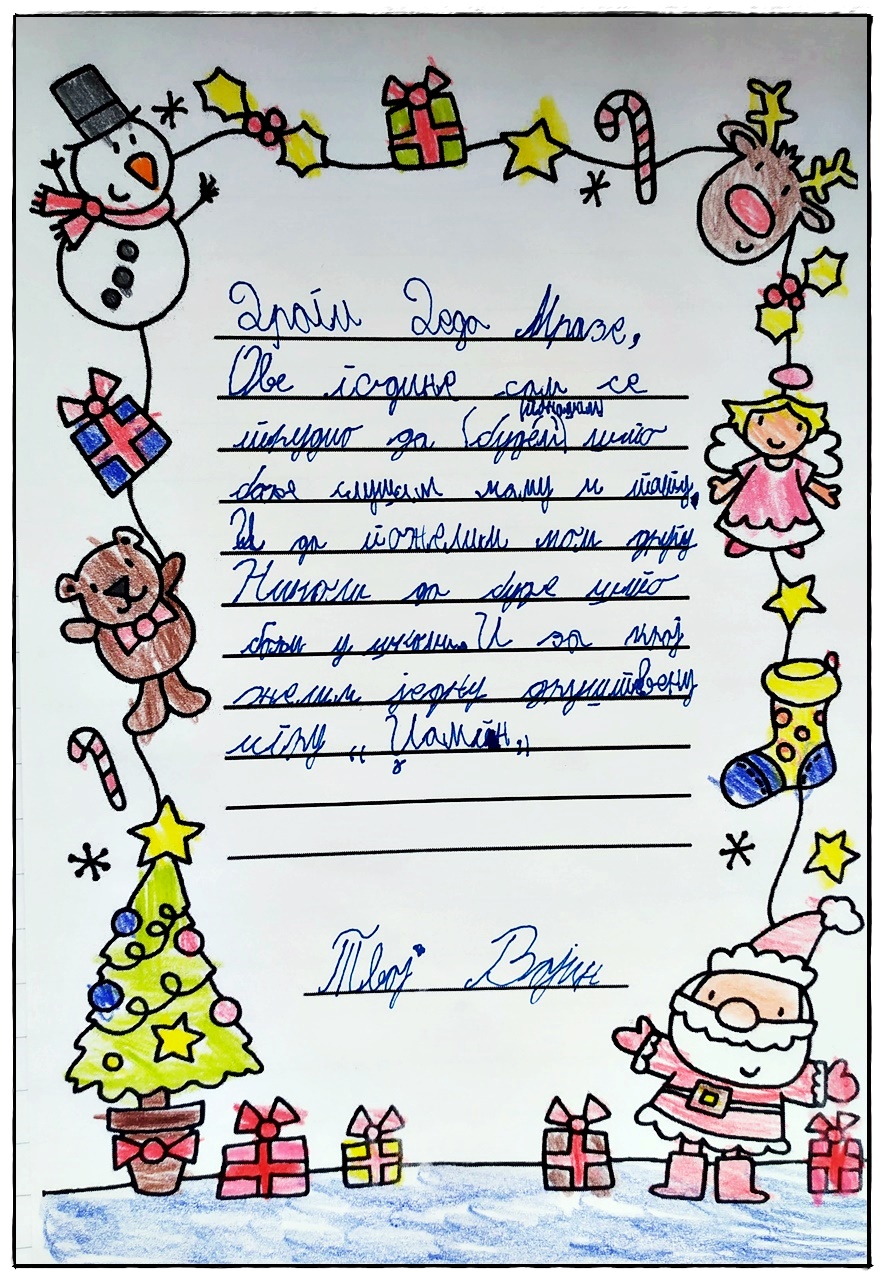 Драги Деда Мразе,
Ове године сам се
(понашам)
трудио да (будем) што
боље слушам маму и тату.
И да пожелим мом другу
Николи да буде што
бољи у школи. И за крај
желим једну друштвену
игру
Твој Војин